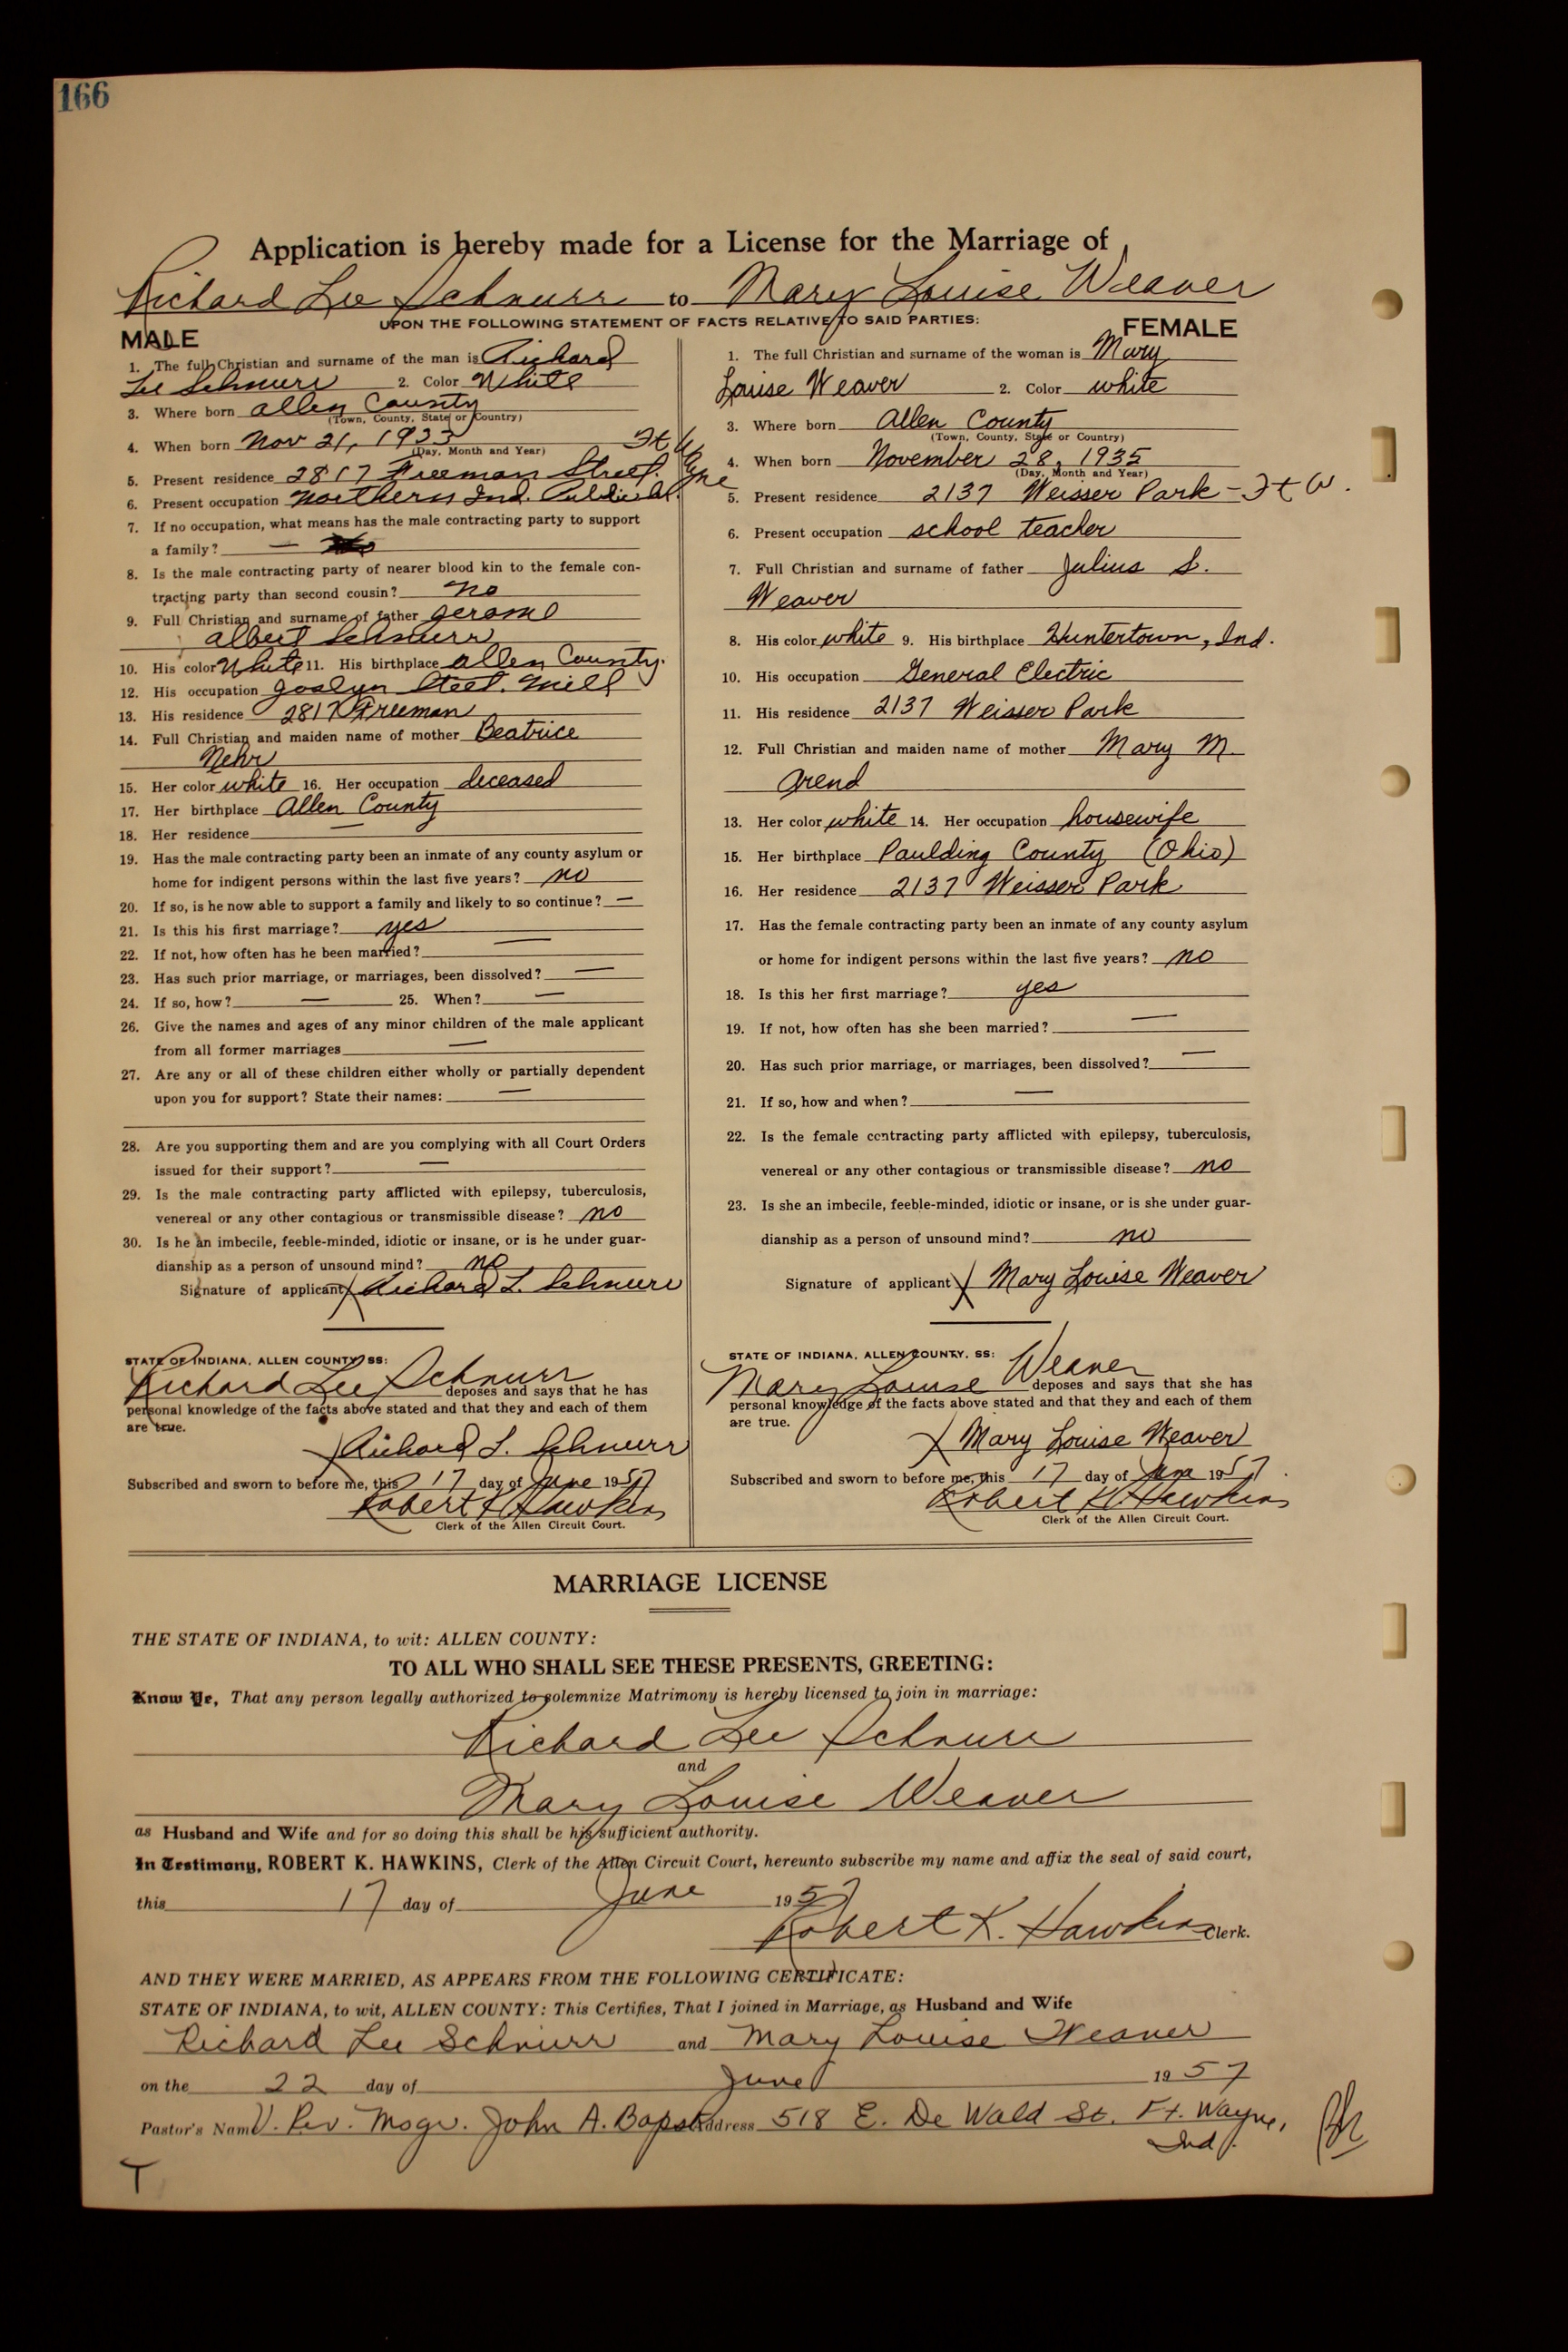 166
Application is hereby made for a License for the Marriage of
Richard Lee Schnurr to Mary Louise Weaver
UPON THE FOLLOWING STATEMENT OF FACTS RELATIVE TO SAID PARTIES:
MALE
1. The full Christian and surname of the man is Richard
Lee Schnurr 2. Color White
3. Where born Allen County
(Town, County, State or Country)
4. When born Nov 21, 1933
(Day, Month and Year)
Ft Wayne
5. Present residence 2817 Freeman Street.
6. Present occupation Northern Ind.
7. If no occupation, what means has the male contracting party to support
a family? —
8. Is the male contracting party of nearer blood kin to the female con-
tracting party than second cousin? no
9. Full Christian and surname of father Jerome
Albert Schnurr
10. His color White 11. His birthplace Allen County.
12. His occupation Joslyn Steel. Mill
13. His residence 2817 Freeman
14. Full Christian and maiden name of mother Beatrice
Nehr
15. Her color white 16. Her occupation deceased
17. Her birthplace Allen County
18. Her residence —
19. Has the male contracting party been an inmate of any county asylum or
home for indigent persons within the last five years? no
20. If so, is he now able to support a family and likely to so continue? —
21. Is this his first marriage? yes
22. If not, how often has he been married? —
23. Has such prior marriage, or marriages, been dissolved? —
24. If so, how? — 25. When? —
26. Give the names and ages of any minor children of the male applicant
from all former marriages —
27. Are any or all of these children either wholly or partially dependent
upon you for support? State their names: —
28. Are you supporting them and are you complying with all Court Orders
issued for their support? —
29. Is the male contracting party afflicted with epilepsy, tuberculosis,
venereal or any other contagious or transmissible disease? no
30. Is he an imbecile, feeble-minded, idiotic or insane, or is he under guar-
dianship as a person of unsound mind? no
Signature of applicant X Richard L. Schnurr
STATE OF INDIANA, ALLEN COUNTY, SS:
Richard Lee Schnurr deposes and says that he has
personal knowledge of the facts above stated and that they and each of them
are true.
X Richard L. Schnurr
Subscribed and sworn to before me, this 17 day of June 1957
Robert K. Hawkins
Clerk of the Allen Circuit Court.
FEMALE
1. The full Christian and surname of the woman is Mary
Louise Weaver 2. Color white
3. Where born Allen County
(Town, County, State or Country)
4. When born November 28, 1935
(Day, Month and Year)
5. Present residence 2137 Weisser Park - Ft W.
6. Present occupation school teacher
7. Full Christian and surname of father Julius S.
Weaver
8. His color white 9. His birthplace Huntertown, Ind.
10. His occupation General Electric
11. His residence 2137 Weisser Park
12. Full Christian and maiden name of mother Mary M.
Arend
13. Her color white 14. Her occupation housewife
15. Her birthplace Paulding County (Ohio)
16. Her residence 2137 Weisser Park
17. Has the female contracting party been an inmate of any county asylum
or home for indigent persons within the last five years? no
18. Is this her first marriage? yes
19. If not, how often has she been married? —
20. Has such prior marriage, or marriages, been dissolved? —
21. If so, how and when? —
22. Is the female contracting party afflicted with epilepsy, tuberculosis,
venereal or any other contagious or transmissible disease? no
23. Is she an imbecile, feeble-minded, idiotic or insane, or is she under guar-
dianship as a person of unsound mind? no
Signature of applicant X Mary Louise Weaver
STATE OF INDIANA, ALLEN COUNTY, SS:
Mary Louise Weaver deposes and says that she has
personal knowledge of the facts above stated and that they and each of them
are true.
X Mary Louise Weaver
Subscribed and sworn to before me, this 17 day of June 1957
Robert K. Hawkins
Clerk of the Allen Circuit Court.
MARRIAGE LICENSE
THE STATE OF INDIANA, to wit: ALLEN COUNTY:
TO ALL WHO SHALL SEE THESE PRESENTS, GREETING:
Know Ye, That any person legally authorized to solemnize Matrimony is hereby licensed to join in marriage:
Richard Lee Schnurr
and
Mary Louise Weaver
as Husband and Wife and for so doing this shall be his sufficient authority.
In Testimony, ROBERT K. HAWKINS, Clerk of the Allen Circuit Court, hereunto subscribe my name and affix the seal of said court,
this 17 day of June 1957
Robert K. Hawkins Clerk.
AND THEY WERE MARRIED, AS APPEARS FROM THE FOLLOWING CERTIFICATE:
STATE OF INDIANA, to wit, ALLEN COUNTY: This Certifies, That I joined in Marriage, as Husband and Wife
Richard Lee Schnurr and Mary Louise Weaver
on the 22 day of June 1957
Pastor's Name V. Rev. Msgr. John A. Bapst Address 518 E. De Wald St. Ft. Wayne,
Ind.
T